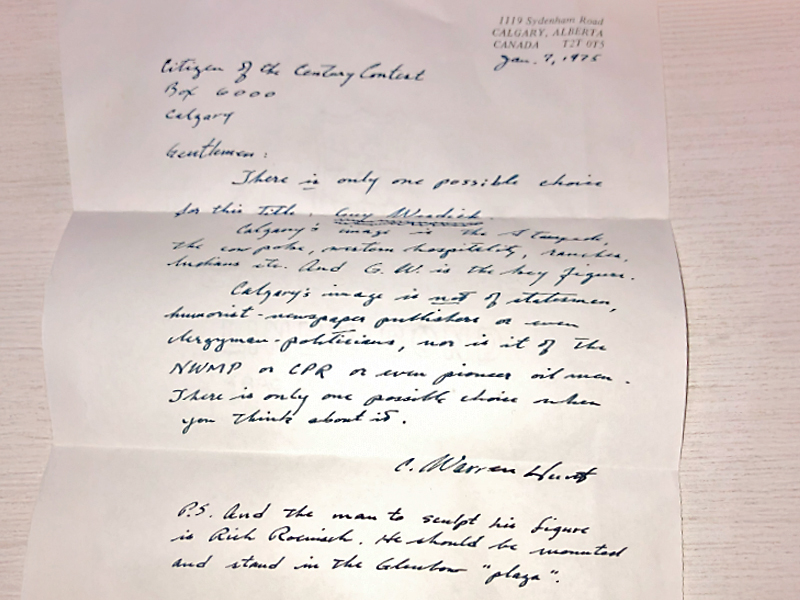 1119 Sydenham Road
CALGARY, ALBERTA
CANADA T2T 0T5
Jan. 7, 1975
Citizen of the Century Contest
Box 6000
Calgary
Gentlemen:
There is only one possible choice
for this title. Guy Weadick.
Calgary's image is the Stampede,
the cow poke, western hospitality, ranches,
Indians etc. And G.W. is the key figure.
Calgary's image is not of statesmen,
humorist-newspaper publishers or even
clergyman-politicians, nor is it of the
NWMP or CPR or even pioneer oil men.
There is only one possible choice when
you think about it.
C. Warren Hunt
P.S. And the man to sculpt his figure
is Rich Roenisch. He should be mounted
and stand in the Glenbow "plaza".